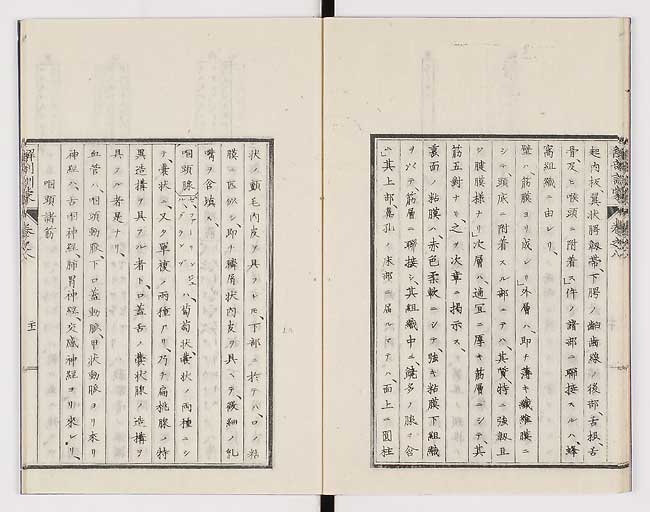 起内板翼状腭靱帯、下腭ノ齨齒線ノ後部、舌根、舌
骨、及ヒ喉頭ニ附着ス」件ノ諸部ニ聯接スルハ、蜂
窩組織ニ由レリ、
壁ハ、筋膜ヨリ成レリ」外層ハ、即チ薄キ纖維膜ニ
シテ、頭底ニ附着スル部ニ於テハ、其質特ニ強靱且
ツ腱膜様ナリ」次層ハ、適宜ニ厚キ筋層ニシテ、其
筋五對ナリ、之ヲ次章ニ掲示ス、
裏面ノ粘膜ハ、赤色柔軟ニシテ強キ粘膜下組織
ヲ以テ、筋層ニ聯接シ、其組織中ニ、饒多ノ腺ヲ含
ム」其上部鼻孔ノ床部ニ届ルマテハ、面上ニ圓柱
状ノ顫毛内皮ヲ具フレトモ、下部ニ於テハ、口ノ粘
膜ニ匹似シ、即チ鱗屑状内皮ヲ具ヘテ、緻細ノ乳
嘴ヲ含メリ、
咽頭腺ハ、葡萄状、嚢状ノ兩種ニシ
テ、嚢状ニ又タ單複ノ兩種アリ、乃チ扁桃腺ノ特
異造構ヲ具フル者ト、口蓋舌ノ嚢状腺ノ造構ヲ
具フル者是ナリ、
血管ハ、咽頭動脈、下口蓋動脈、甲状動脈ヨリ来リ
神経ハ、舌咽神経、肺胃神経、交感神経ヨリ来レリ、
咽頭諸筋
解剖訓蒙
巻之八